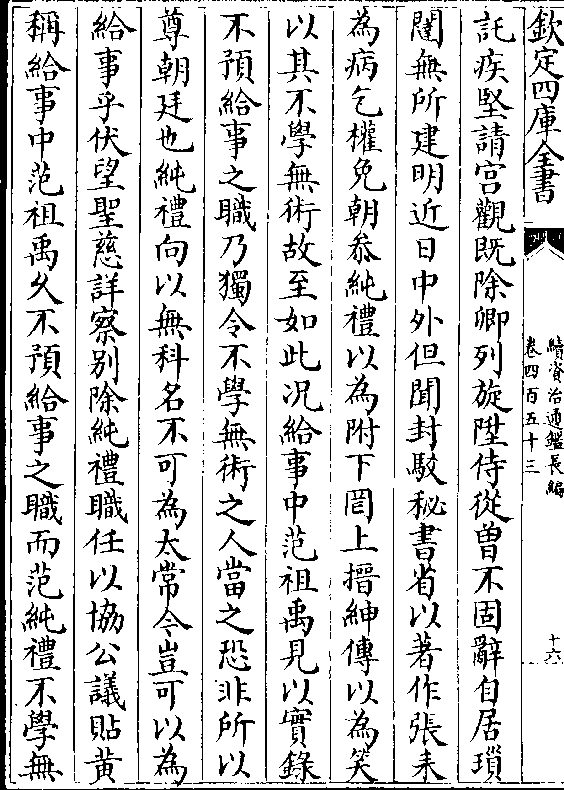 欽定四庫全書
續資治通鑑長編
卷四百五十三
十六
託疾堅請宫觀既除卿列旋陞侍從曾不固辭自居瑣
闥無所建明近日中外但聞封駁秘書省以著作張耒
為病乞權免朝叅純禮以為附下罔上搢紳傳以為笑
以其不學無術故至如此况給事中范祖禹見以實錄
不預給事之職乃獨令不學無術之人當之恐非所以
尊朝廷也純禮向以無科名不可為太常今豈可以為
給事乎伏望聖慈詳察别除純禮職任以協公議貼黄
稱給事中范祖禹久不預給事之職而范純禮不學無